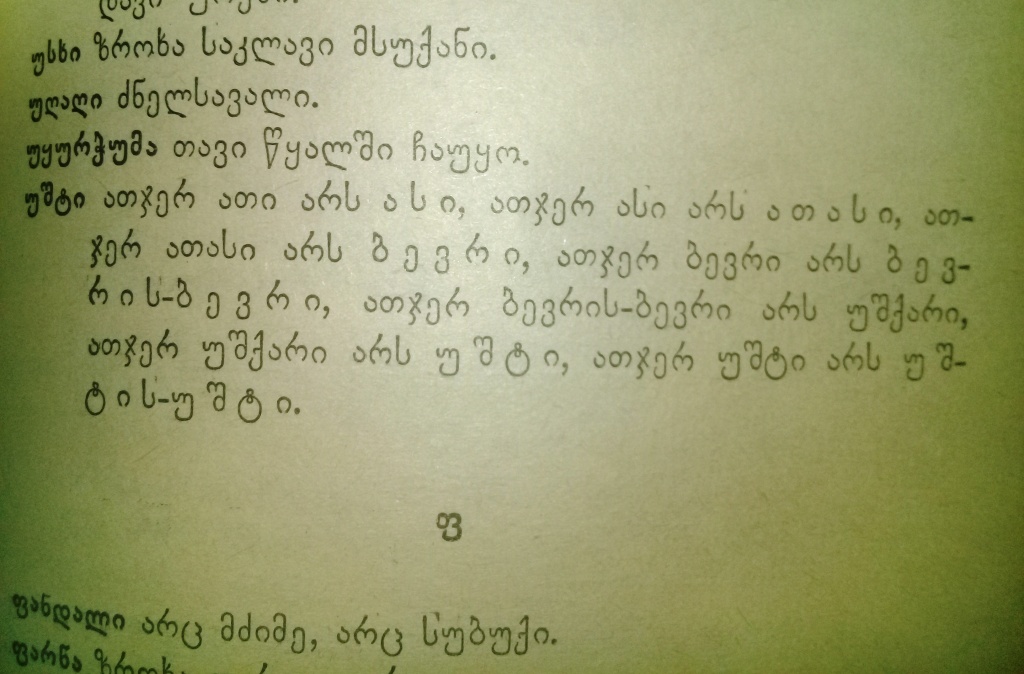 უსხი ზროხა საკლავი მსუქანი.
უღაღი ძნელსავალი.
უყურჭუმა თავი წყალში ჩაუყო.
უშტი ათჯერ ათი არს ა ს ი, ათჯერ ასი არს ა თ ა ს ი, ათ-
ჯერ ათასი არს ბ ე ვ რ ი, ათჯერ ბევრი არს ბ ე ვ-
რ ი ს-ბ ე ვ რ ი, ათჯერ ბევრის-ბევრი არს უშქარი,
ათჯერ უშქარი არს უ შ ტ ი, ათჯერ უშტი არს უ შ-
ტ ი ს-უ შ ტ ი.
ფ
ფანდალი არც მძიმე, არც სუბუქი.
ფარნა ზროხა